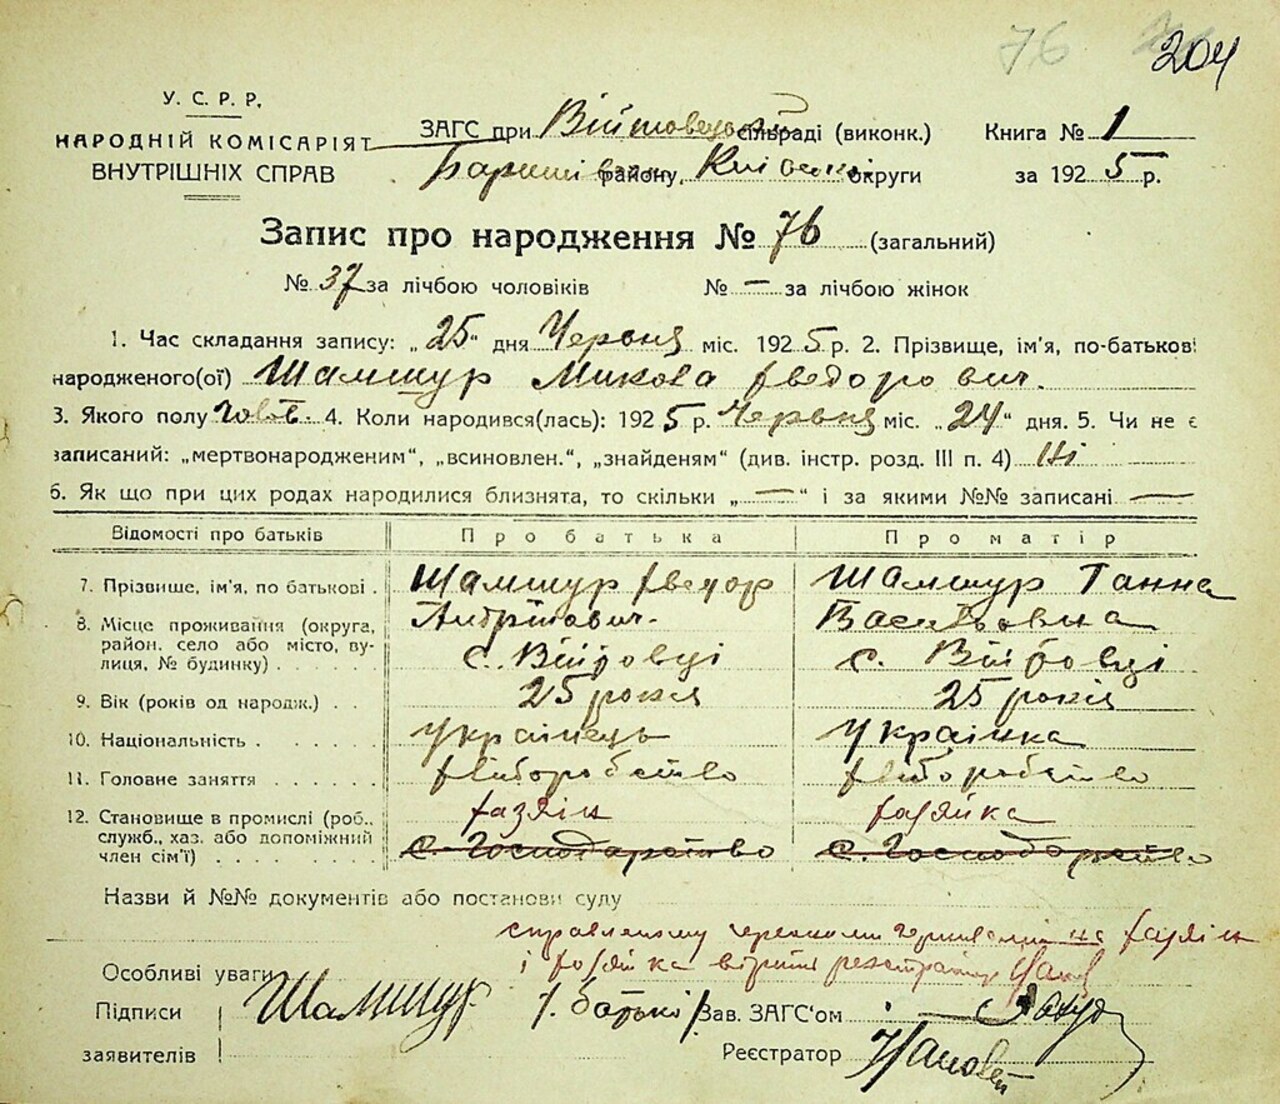 76 204
У. С. Р. Р.
НАРОДНІЙ КОМІСАРІЯТ
ВНУТРІШНІХ СПРАВ
ЗАГС при Війтовецькій сільраді (виконк.) Книга № 1
Баришівськ району, Київської округи за 1925 р.
Запис про народження № 76 (загальний)
№ 37 за лічбою чоловіків № — за лічбою жінок
1. Час складання запису: „25" дня Червня міс. 1925 р. 2. Прізвище, ім'я, по-батькові
народженого(ої) Шамшур Микола Федорович.
3. Якого полу чолов. 4. Коли народився(лась): 1925 р. Червня міс. „24" дня. 5. Чи не є
записаний: „мертвонародженим", „всиновлен.", „знайденям" (див. інстр. розд. III п. 4) Ні
6. Як що при цих родах народилися близнята, то скільки „—" і за якими №№ записані —
Відомості про батьків Про батька Про матір
7. Прізвище, ім'я, по батькові . Шамшур Федор Шамшур Ганна
8. Місце проживання (округа, Андрієвич. Васильовна
район, село або місто, ву-
лиця, № будинку) . . . . . с. Війтовці с. Війтовці
9. Вік (років од народж.) . . 25 років 25 років
10. Національність . . . . . . українець українка
11. Головне заняття . . . . . хліборобство хліборобство
12. Становище в промислі (роб., хазяїн хазяйка
служб., хаз. або допоміжний
член сім'ї) . . . . . . . . с. Господарство с. Господарство
Назви й №№ документів або постанови суду
на хазяїн
Особливі уваги і хазяйка вірити реєстратор
Підписи Шамшур /батько/ Зав. ЗАГС'ом
заявителів Реєстратор